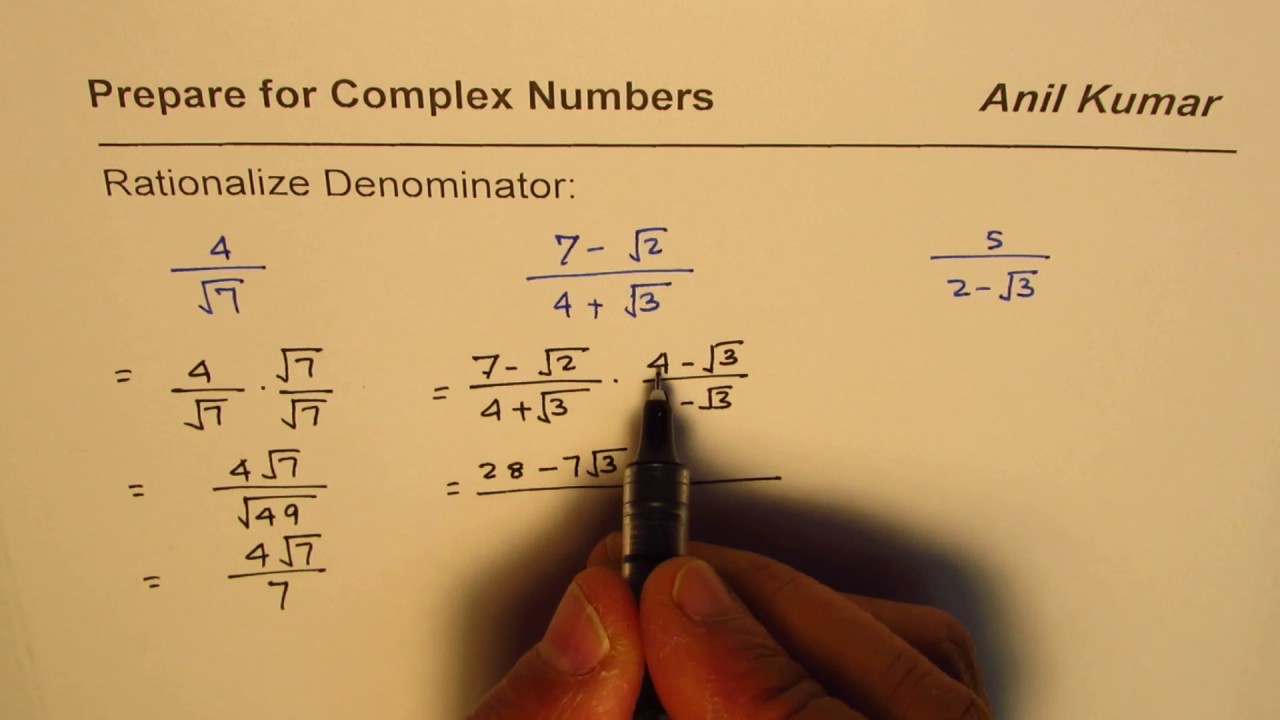 Prepare for Complex Numbers Anil Kumar
Rationalize Denominator:
4/√7
(7 - √2)/(4 + √3)
5/(2 - √3)
= 4/√7 · √7/√7
= 4√7/√49
= 4√7/7
= (7 - √2)/(4 + √3) · (4 - √3)/( - √3)
= 28 - 7√3